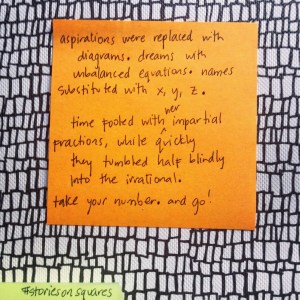 aspirations were replaced with
diagrams. dreams with
unbalanced equations. names
substituted with x, y, z.
time pooled with her impartial
practions, while quickly
they tumbled half blindly
into the irrational.
take your number. and go!
#storiesonsquares